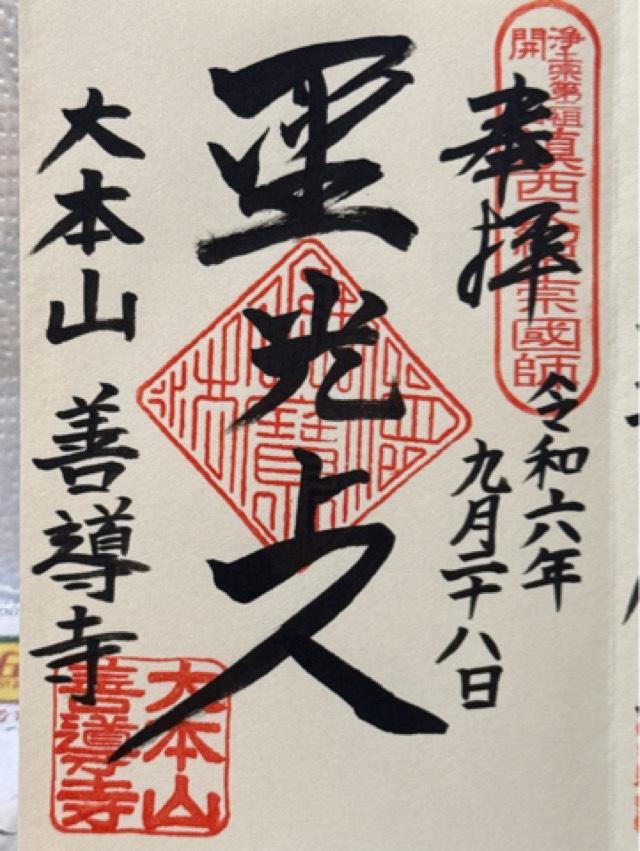 浄土宗第二祖
開
鎮西大紹正宗國師
奉拝
令和六年
九月二十八日
聖光上人
大本山 善導寺
大本山
善導寺